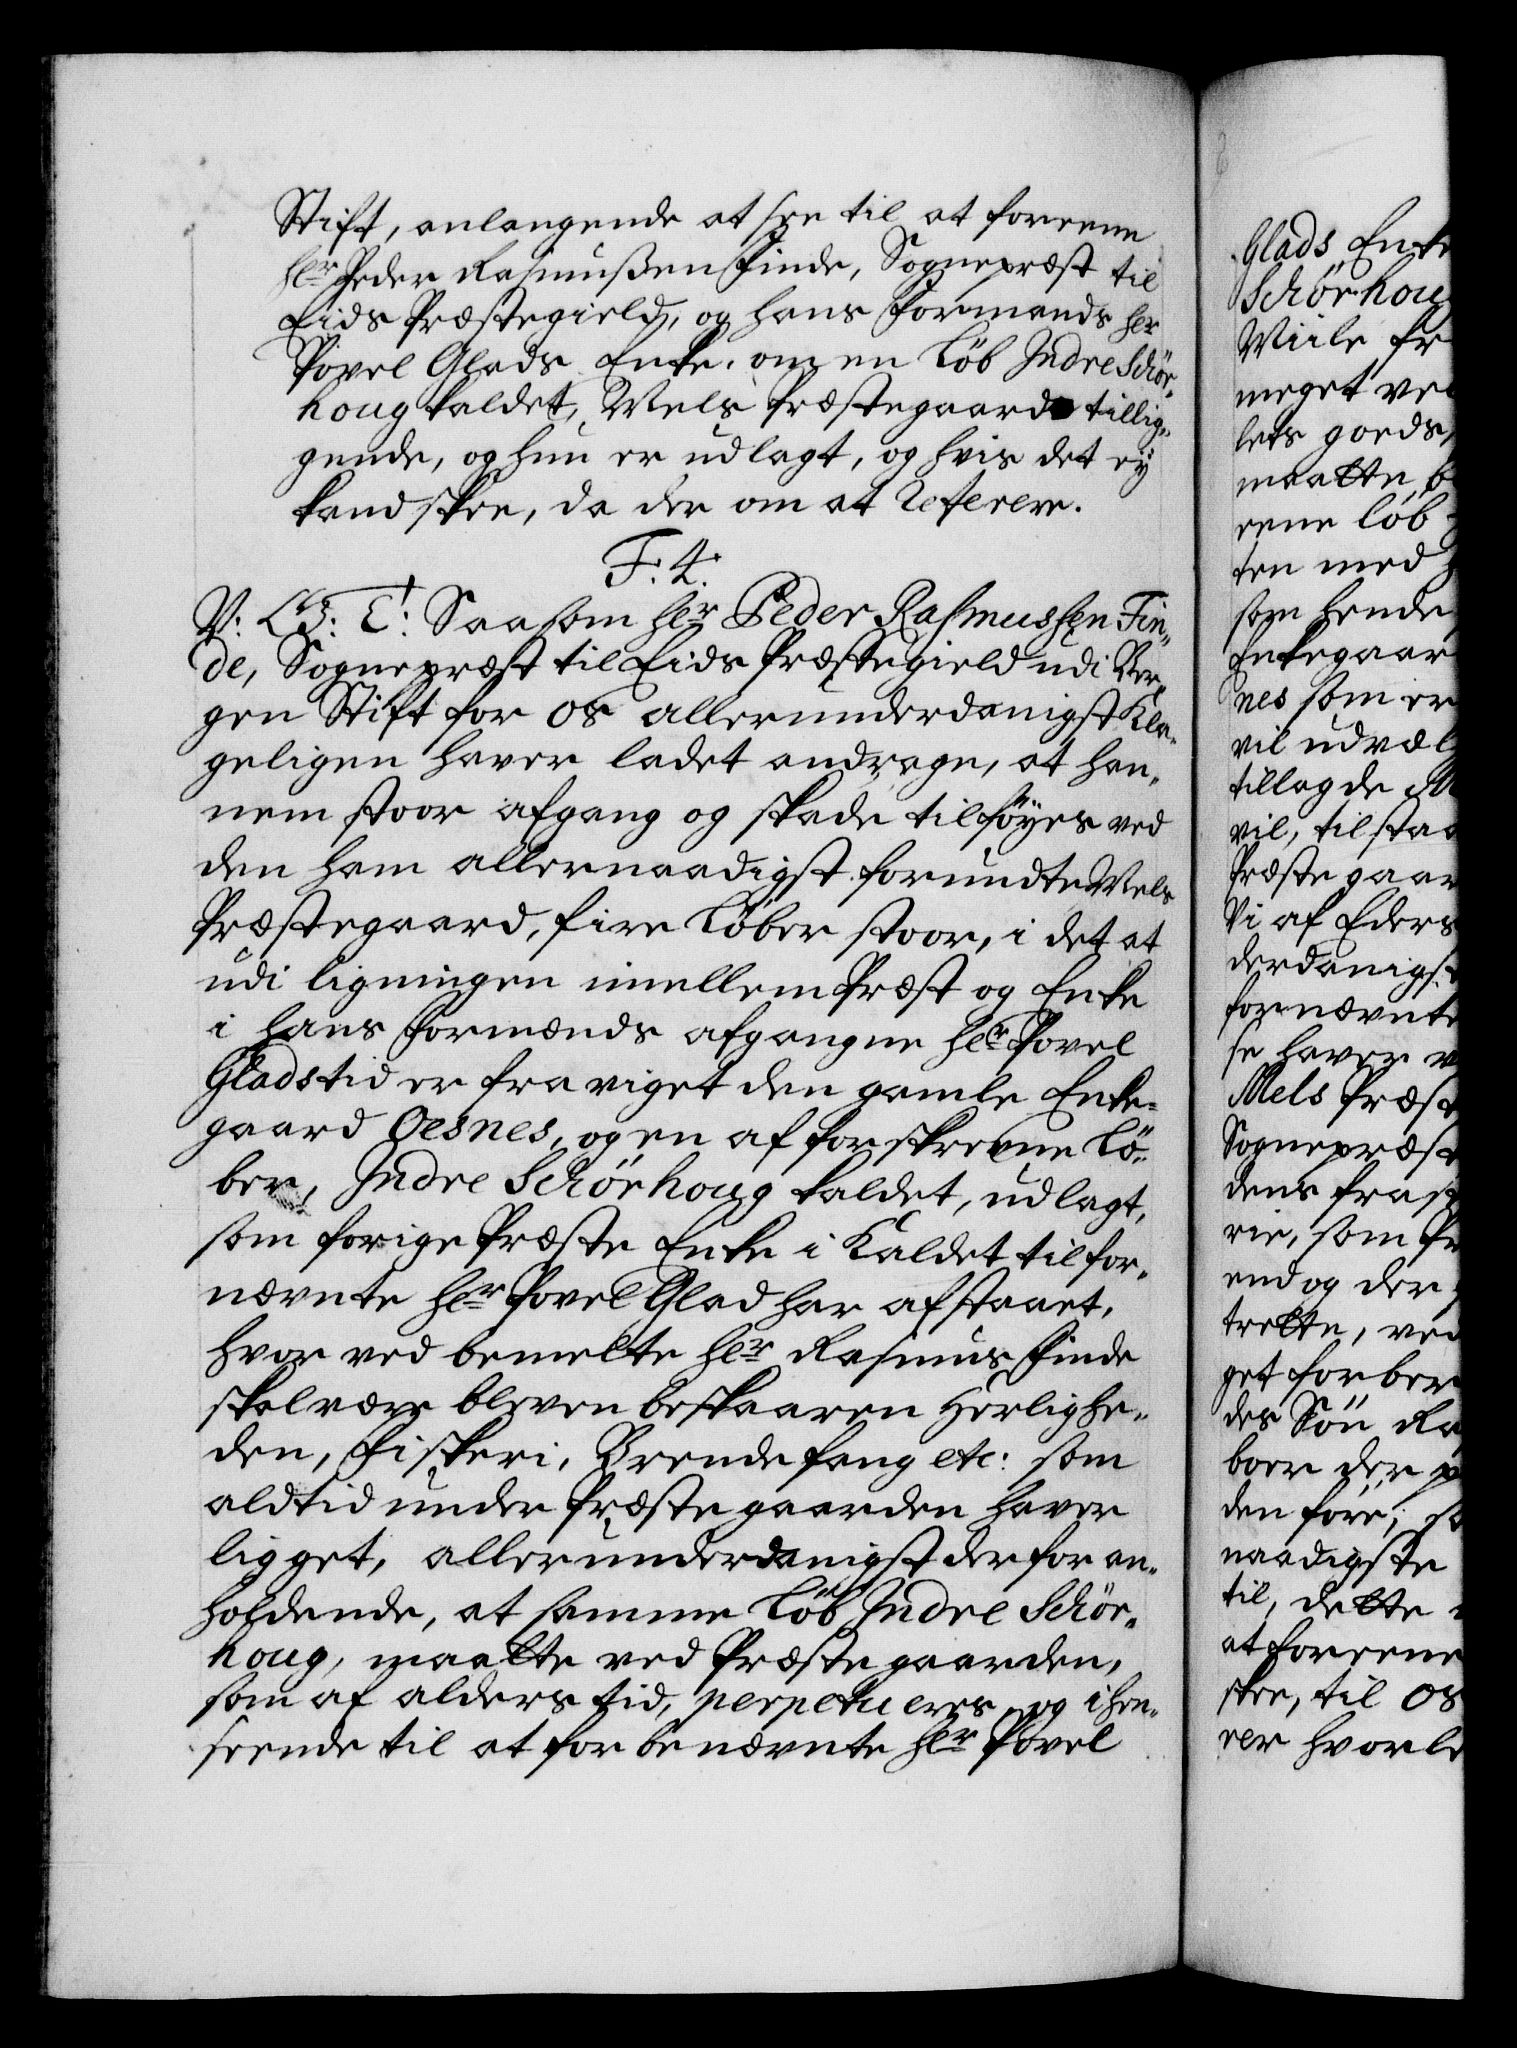 Stift, anlangende at see til at foreene
hlr Peder Rasmußen Finde, Sognepræst til
Eids Præstegield, og hans Formands hlr
Povel Glads Enke, om en Löb Indre Schör,,
houg kaldet, Mels Præstegaard tillig,,
gende, og hun er udlagt, og hvis det ey
kand skee, da der om at Referere.
F. 4.
V: G: T: Saasom hlr Peder Rasmussen Fin,,
de, Sognepræst til Eids Præstegield udi Ber,,
gen Stift for OS allerunderdanigst Kla,,
geligen haver ladet andrage, at han,,
nem stoor afgang og skade tilföyes ved
den ham allernaadigst forundte Mels
Præstegaard, fire Löber stoor, i det at
udi ligningen imellem Præst og Enke
i hans Formands afgangne hlr Povel
Glads tid er fraviget den gamle Enke,,
gaard Oesnes, og en af forskrevne Lö,,
ber, Indre Schörhoug kaldet, udlagt,
som forige Præste Enke i Kaldet til for,,
nævnte hlr Povel Glad har afstaaet,
hvor ved bemelte hlr Rasmus Finde
skal være bleven beskaaren Herlighe,,
den, Fiskeri, Brendefang etc: som
aldtid under Præstegaarden haver
ligget, allerunderdanigst derfor an,,
holdende, at samme Löb Indre Schör,,
houg, maatte ved Præstegaarden,
som af alders tid, perpetueres, og i hen,,
seende til at forbenævnte hlr Povel
Glads Enke
Schörhoug
Miile fr
meget ve
lets goeds,
maatte b
eene löb
ten med
som hende
Enkegaar
nes som er
vil udvæl
tillagde M
vil, tilstaa
Præstegaar
Vi af Eders
derdanigst
fornævnte
se haver v
Mels Præst
Sognepræst
dens fra
rie, som Pr
end og der
trette, ved
get forber
des Sön Ra
boer der p
den före, s
naadigste
til, dette
at foreene
skee, til OS
rer hvorle